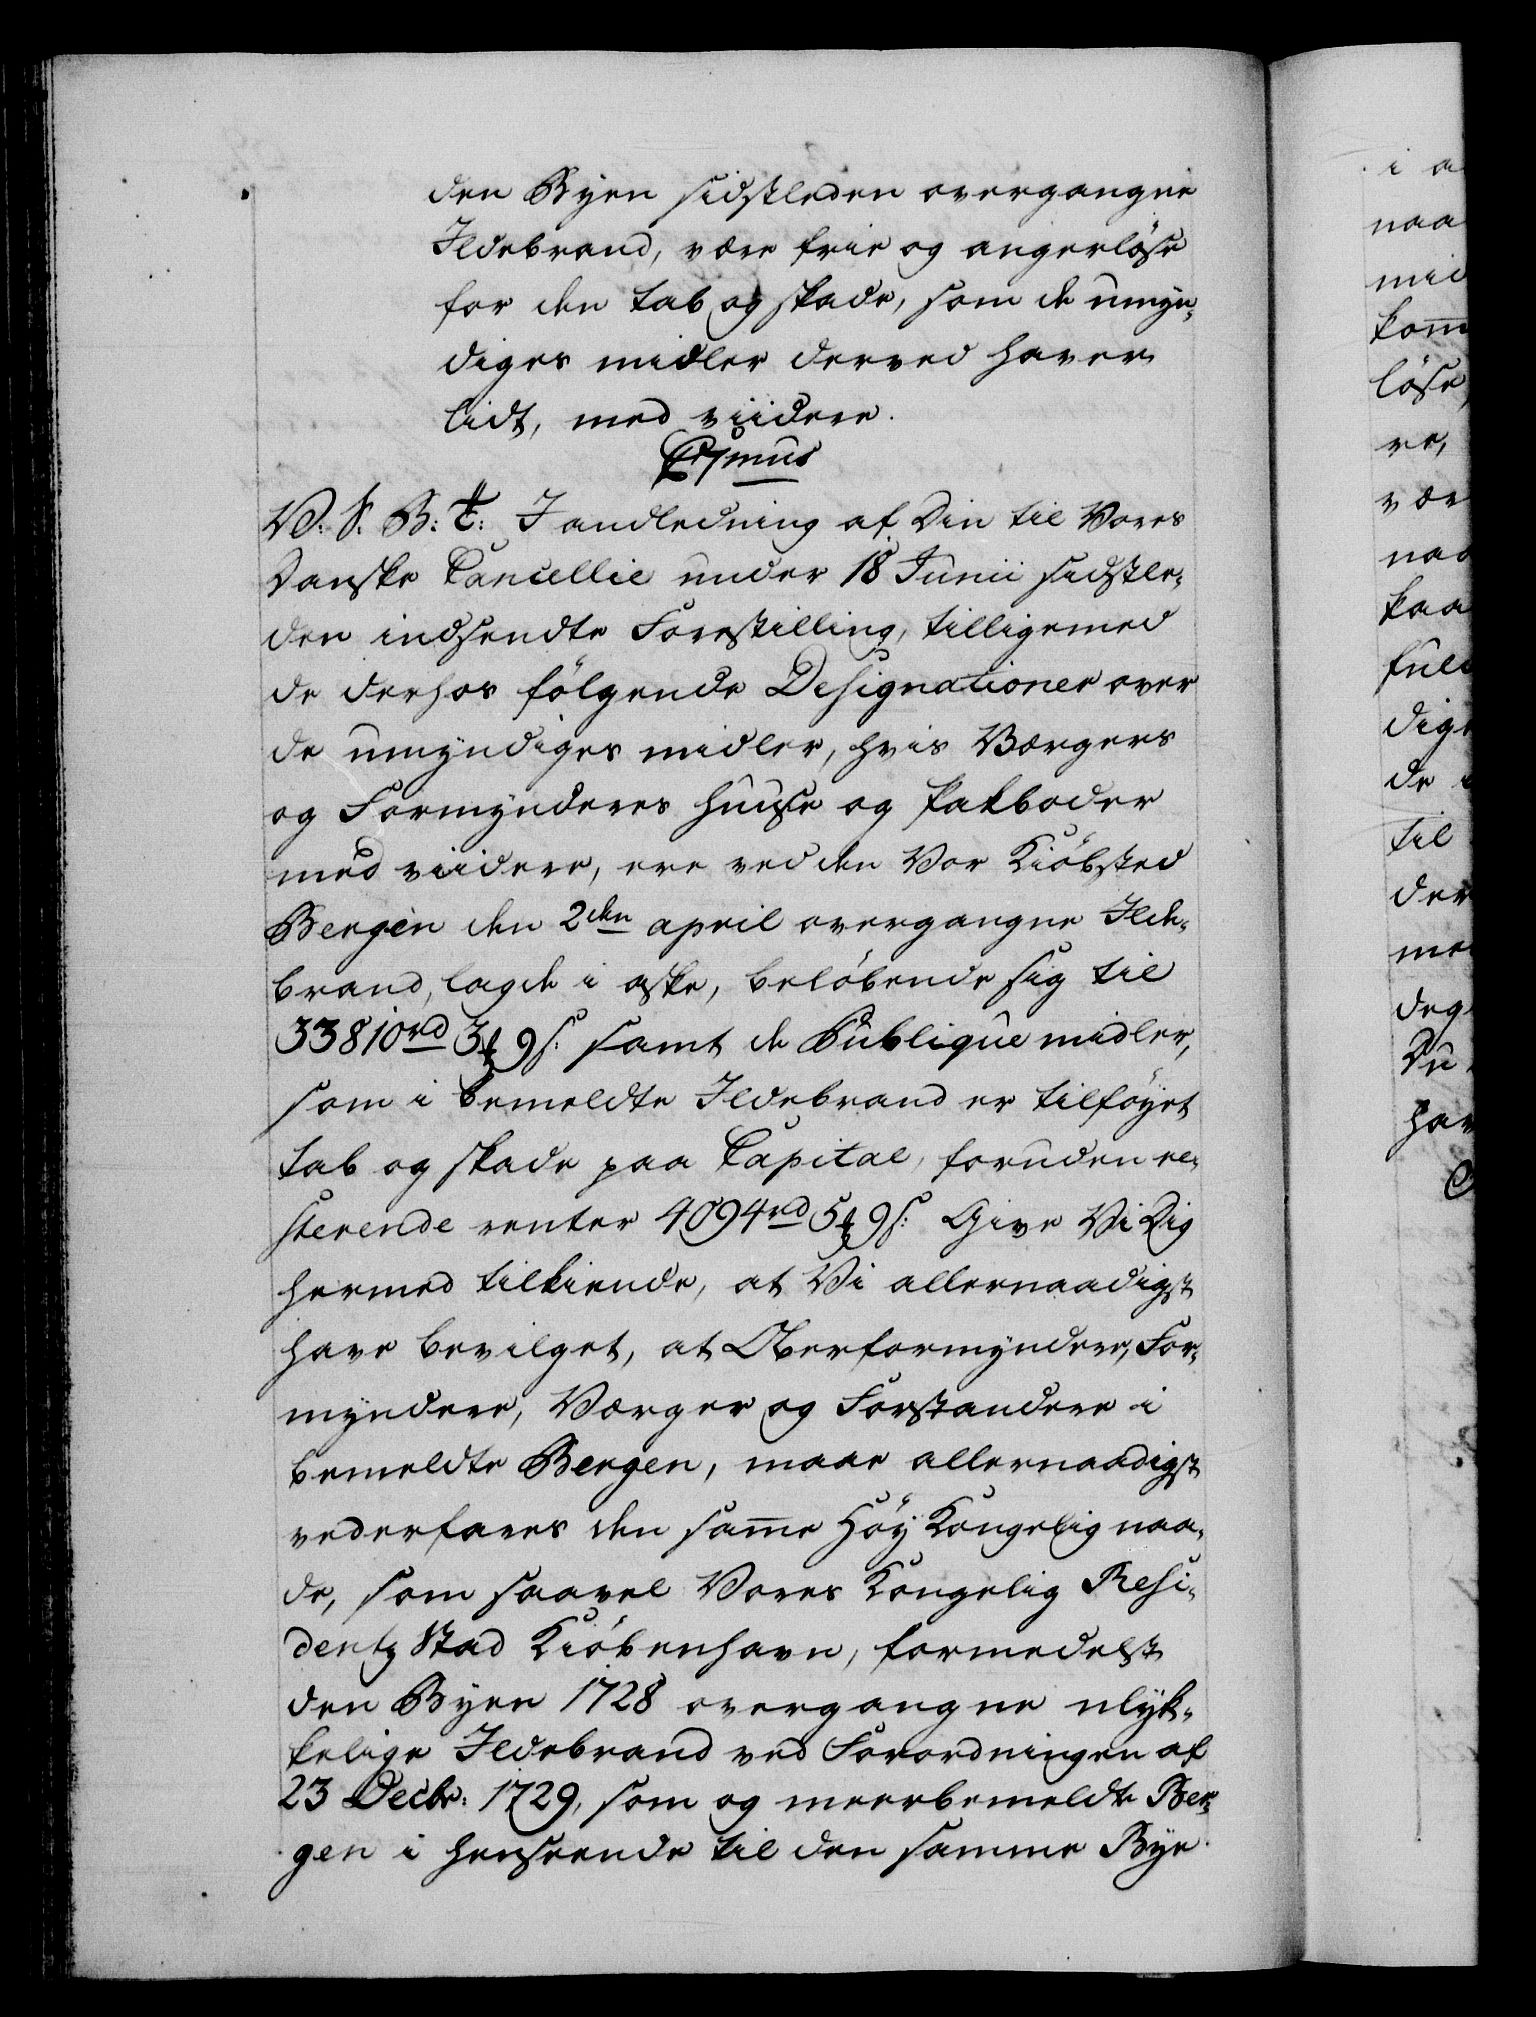 den Byen sidstleden overgangne
Ildebrand, være frie og angerløse
for den tab og skade, som de umyn-
diges midler derved haver
lidt, med viidere.
V. S. B: t: I anledning af Din til Vores
Danske Cancellie under 18 Junii sidstle-
den indsendte Forestilling, tilligemed
de derhos følgende Designationer over
de umyndiges midler, hvis Værgers
og Formynderes huuse og Pakboder
med viidere, ere ved den Vor Kiöbsted
Bergen den 2den april overgangne Ilde-
brand, lagde i aske, beløbende sig til
33810rd 3 9s: samt de Publique midler,
som i bemeldte Ildebrand er tilføyet
tab og skade paa Capital, foruden re-
sterende renter 4094rd 5 9s: Give Vi Dig
hermed tilkiende, at Vi allernaadigst
have bevilget, at Oberformyndere, For-
myndere, Værger og Forstandere i
bemeldte Bergen, maae allernaadigst
vederfares den same Høy Kongelig naa-
de, som saavel Vores Kongelig Resi-
dentz Stad Kiöbenhavn, formedelst
den Byen 1728 overgangne ulyk-
kelige Ildebrand ved Forordningen af
23 Decbr: 1729, som og meerbemeldte Ber-
gen i henseende til den samme Bye
i a
naa
mid
kom
løse,
re,
vær
naa
kaa
ful
dig
de
til
der
me
deg
Du
hav